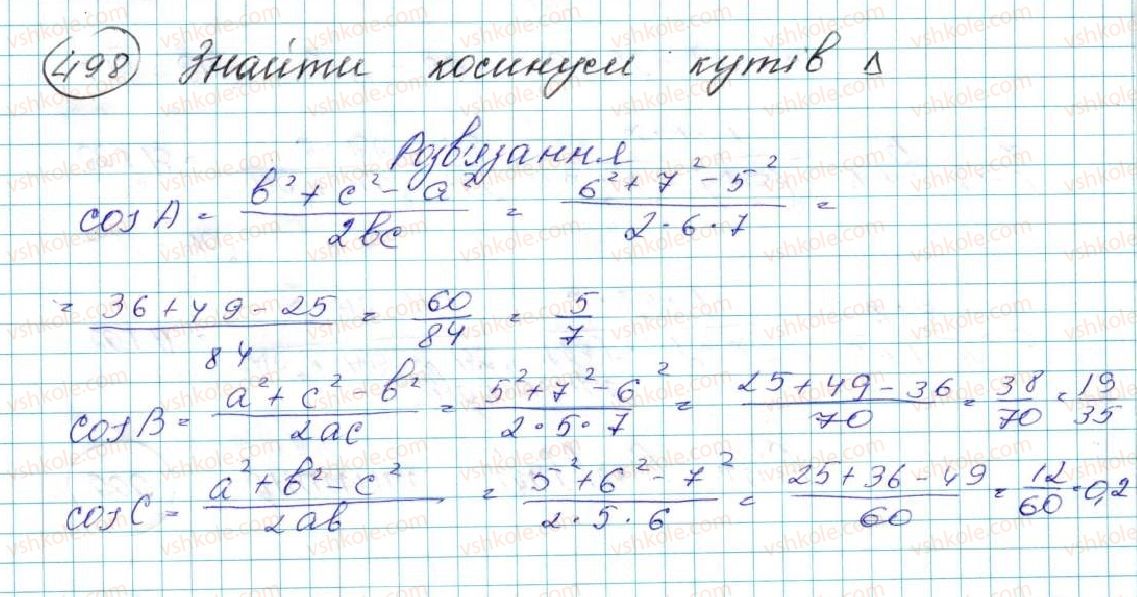 498 Знайти косинуси кутів Δ
Розв'язання
cos A = (b² + c² - a²)/(2bc) = (6² + 7² - 5²)/(2·6·7) =
= (36 + 49 - 25)/84 = 60/84 = 5/7
cos B = (a² + c² - b²)/(2ac) = (5² + 7² - 6²)/(2·5·7) = (25 + 49 - 36)/70 = 38/70 = 19/35
cos C = (a² + b² - c²)/(2ab) = (5² + 6² - 7²)/(2·5·6) = (25 + 36 - 49)/60 = 12/60 = 0,2
vshkole.com